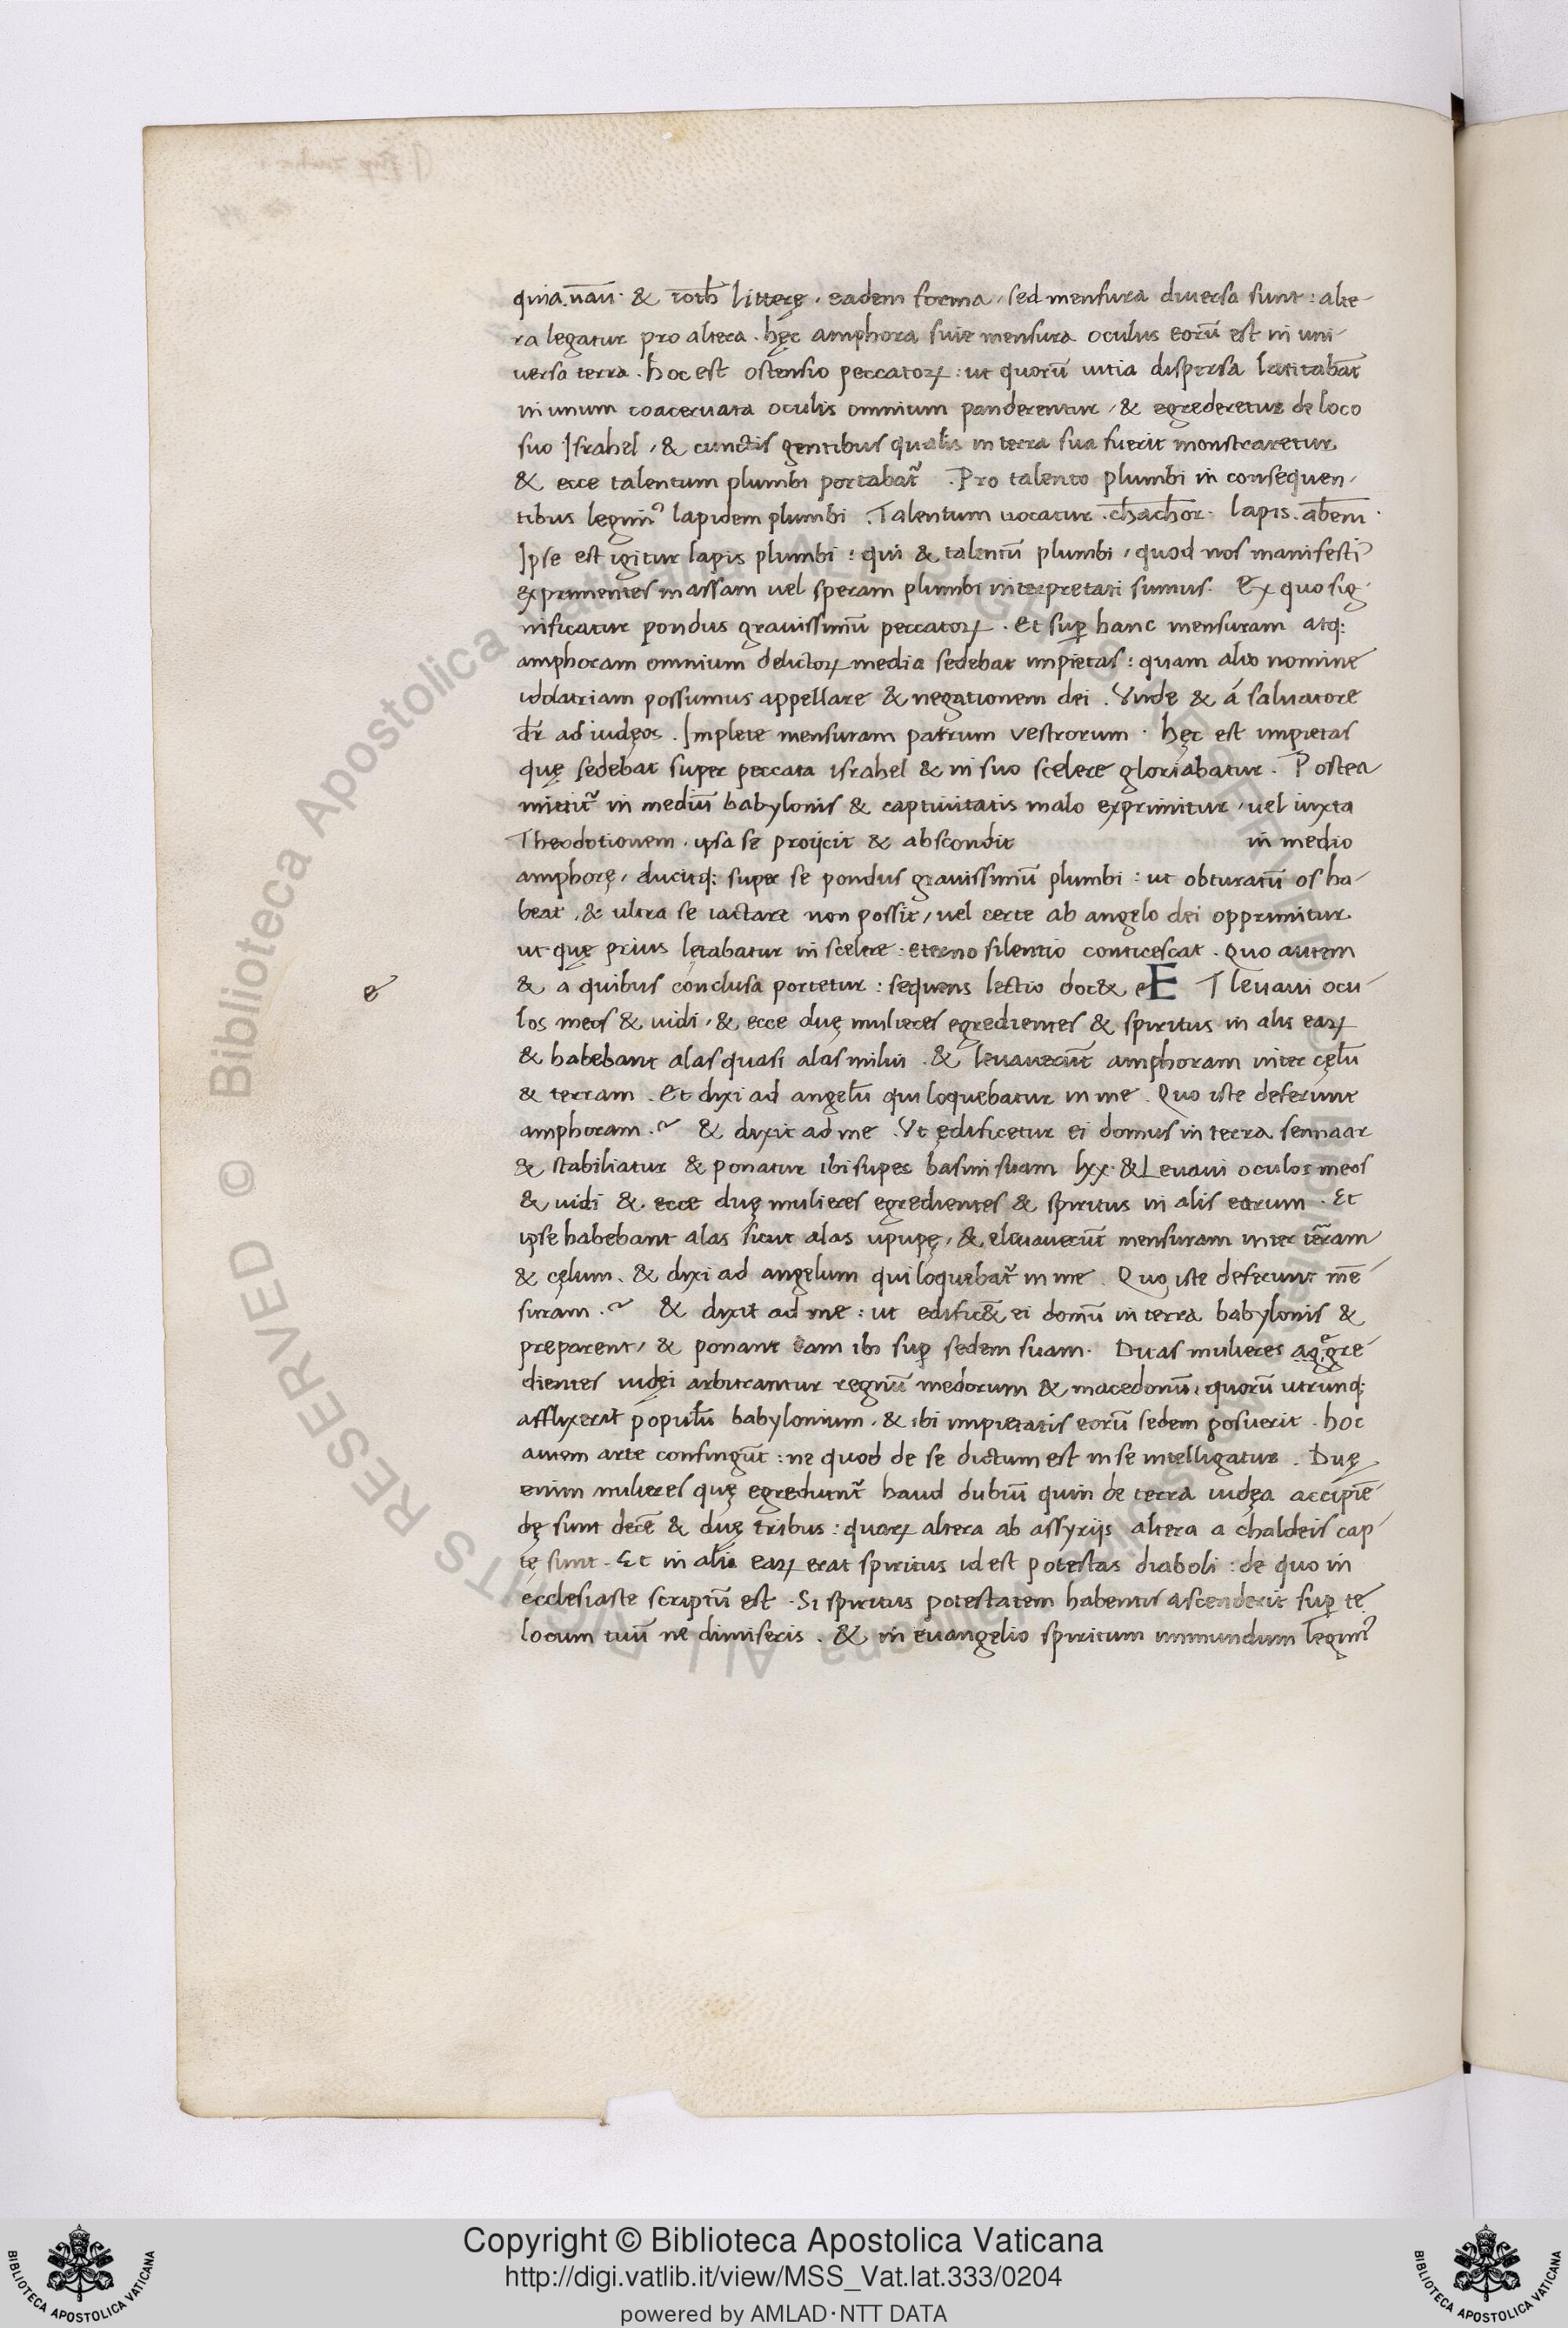 quia .uāu. & ioth litterę, eadem forma, sed mensura diuersa sunt : alte-
ra legatur pro altera . hęc amphora siue mensura oculus eorū est in uni-
uersa terra . hoc est ostensio peccatoꝝ : ut quorū uitia dispersa latitabāt
in unum coaceruata oculis omnium panderentur, & egrederetur de loco
suo Israhel, & cunctis gentibus qualis in terra sua fuerit monstraretur
& ecce talentum plumbi portabat᷑ . Pro talento plumbi in consequen-
tibus legimꝰ lapidem plumbi . Talentum uocatur .chachor. lapis .abem.
Ipse est igitur lapis plumbi : qui & talentū plumbi, quod nos manifestiꝰ
exprimentes massam uel speram plumbi interpretati sumus. Ex quo sig-
nificatur pondus grauissimū peccatoꝝ . Et suꝑ hanc mensuram atq:
amphoram omnium delictoꝝ media sedebat impietas : quam alio nomine
idolatriam possumus appellare & negationem dei . Vnde & á saluatore
dr̄ ad iudęos . Implete mensuram patrum vestrorum . hęc est impietas
quę sedebat super peccata israhel & in suo scelere gloriabatur . Postea
mittit᷑ in mediū babylonis & captiuitatis malo exprimitur, uel iuxta
Theodotionem . ipsa se proijcit & abscondit in medio
amphorę, ducitq: super se pondus grauissimū plumbi : ut obturatū os ha-
beat, & ultra se iactare non possit, uel certe ab angelo dei opprimitur
ut quę prius lętabatur in scelere . eterno silentio conticescat . Quo autem
& a quibus conclusa portetur : sequens lectio doc& e E T leuaui ocu-
e
los meos & uidi, & ecce duę mulieres egredientes & spiritus in alis eaꝝ
& habebant alas quasi alas milui . & leuauerūt amphoram inter cęlū
& terram . Et dixi ad angelū qui loquebatur in me . Quo iste deferunt
amphoram .~ & dixit ad me . Vt ędificetur ei domus in terra sennaar
& stabiliatur & ponatur ibi super basim suam lxx. & Leuaui oculos meos
& uidi & ecce duę mulieres egredientes & spiritus in alis earum . Et
ipse habebant alas sicut alas upupę, & eleuauerūt mensuram inter terram
& cęlum . & dixi ad angelum qui loquebat᷑ in me . Quo iste deferunt mē-
suram .~ & dixit ad me : ut edific& ei domū in terra babylonis &
preparent, & ponant eam ibi suꝑ sedem suam. Duas mulieres aggre-
dientes iudęi arbitrantur regnū medorum & macedonū, quorū utrunq:
afflixerit populū babylonium . & ibi impietatis eorū sedem posuerit . hoc
autem arte confingūt : ne quod de se dictum est in se intelligatur . Duę
enim mulieres quę egrediunt᷑ haud dubiū quin de terra iudęa accipiē-
dę sunt decē & duę tribus : quaꝝ altera ab assyrijs altera a chaldeis cap-
tę sunt . Et in alis eaꝝ erat spiritus id est potestas diaboli : de quo in
ecclesiaste scriptū est . Si spiritus potestatem habentis ascenderit suꝑ te
locum tuū ne dimiseris . & in euangelio spiritum immundum legimꝰ
Copyright © Biblioteca Apostolica Vaticana
http://digi.vatlib.it/view/MSS_Vat.lat.333/0204
powered by AMLAD·NTT DATA